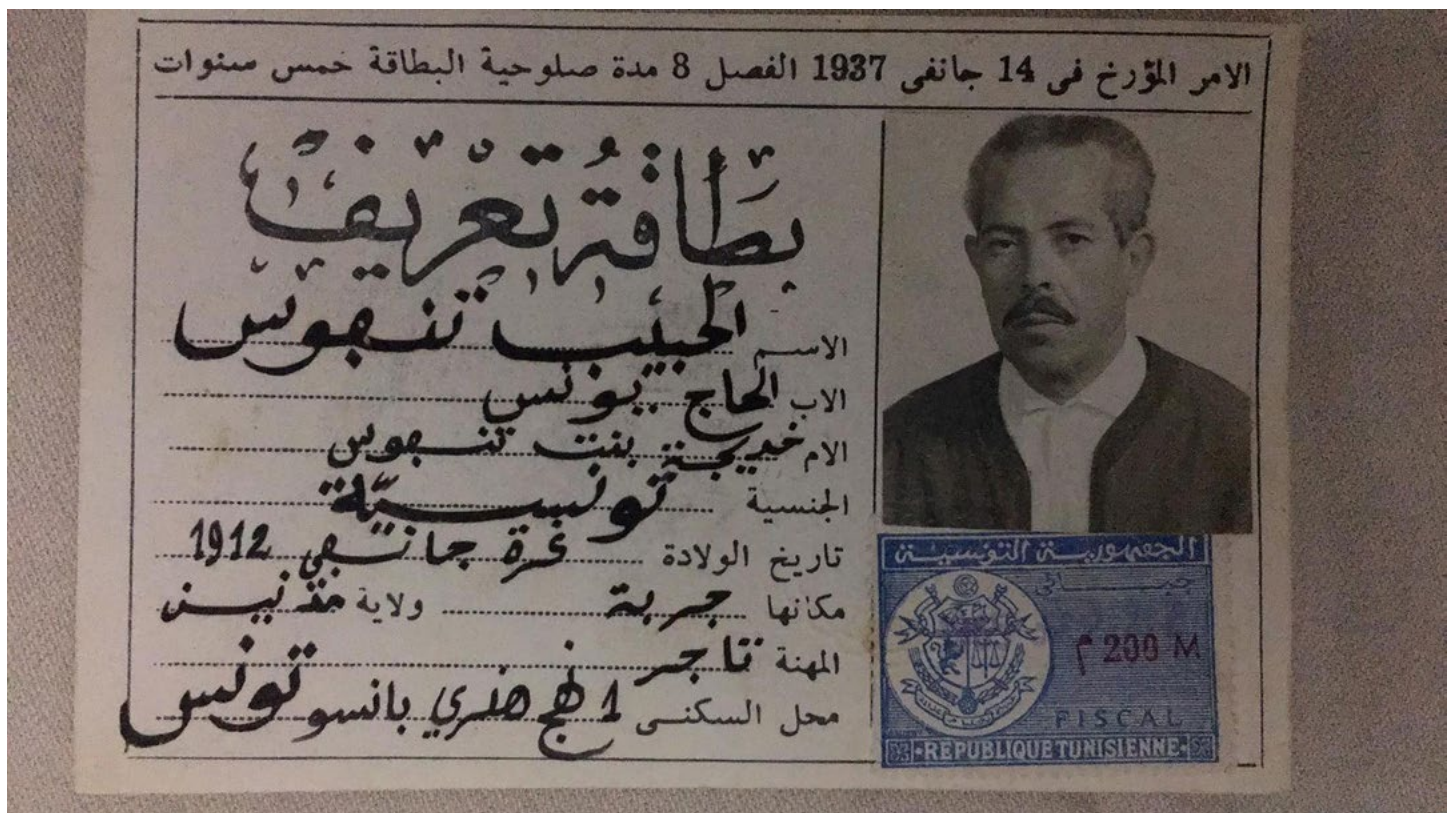 الامر المؤرخ فى 14 جانفى 1937 الفصل 8 مدة صلوحية البطاقة خمس سنوات
بطاقة تعريف
الاسم الحبيب تنفوس
الاب الحاج يونس
الام خديجة بنت تنفوس
الجنسية تونسيّة
تاريخ الولادة غرة جانفي 1912
مكانها جربة ولاية مدنين
المهنة تاجر
محل السكنى 1 نهج هنري بانسو تونس
الجمهورية التونسية
جبائى
200 م M
FISCAL
REPUBLIQUE TUNISIENNE